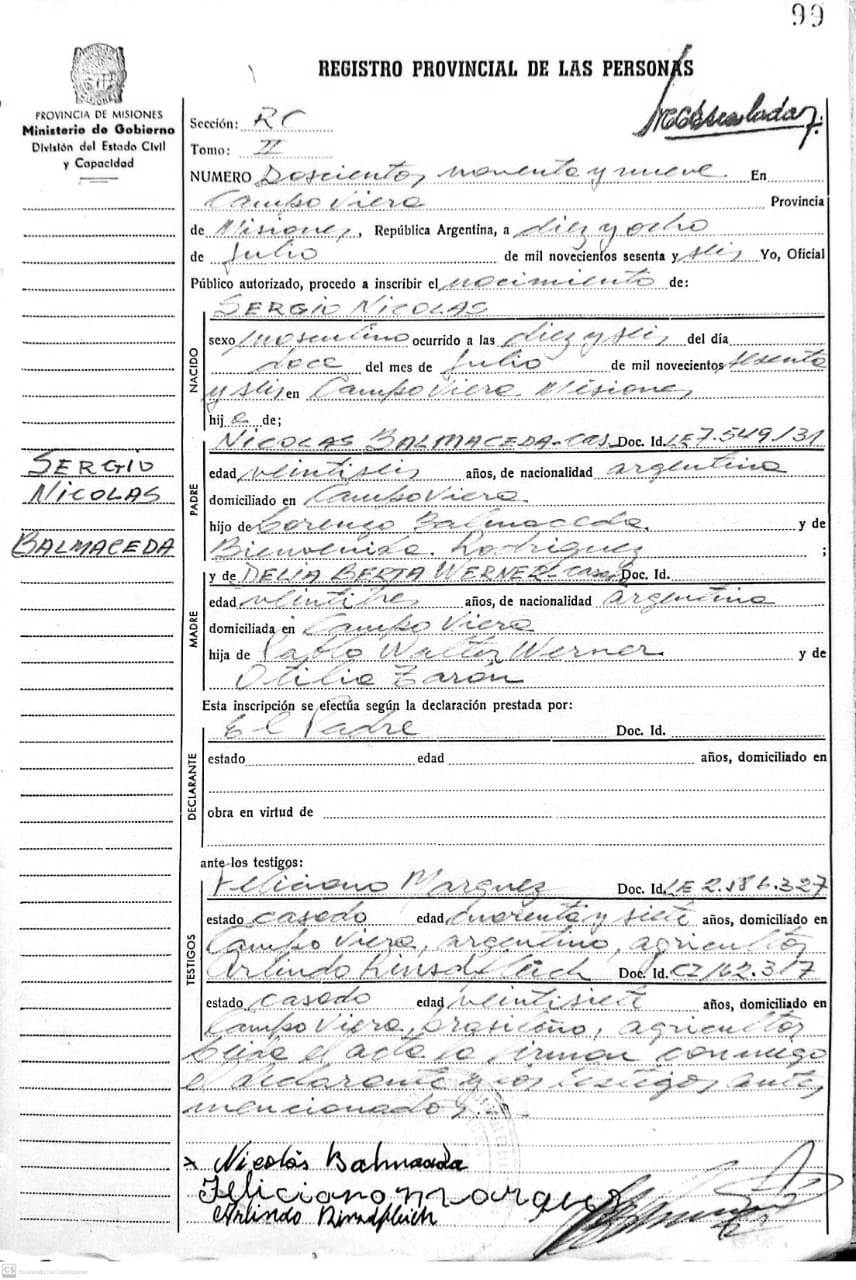 99
REGISTRO PROVINCIAL DE LAS PERSONAS
PROVINCIA DE MISIONES
Ministerio de Gobierno
División del Estado Civil
y Capacidad
Sección: RC
Tomo: II
NUMERO Doscientos noventa y nueve En
Campo Viera Provincia
de Misiones, República Argentina, a diez y ocho
de Julio de mil novecientos sesenta y seis Yo, Oficial
Público autorizado, procedo a inscribir el nacimiento de:
SERGIO NICOLAS
NACIDO
sexo masculino ocurrido a las diez y seis del día
doce del mes de Julio de mil novecientos sesenta
y seis en Campo Viera Misiones
hij o de;
SERGIO
NICOLAS
BALMACEDA
PADRE
NICOLAS BALMACEDA-cas Doc. Id. LE 7.549131
edad veintiseis años, de nacionalidad argentina
domiciliado en Campo Viera
hijo de Lorenzo Balmaceda y de
Bienvenida Rodriguez ;
MADRE
y de DELIA BERTA WERNER-casa Doc. Id.
edad veintitres años, de nacionalidad argentina
domiciliada en Campo Viera
hija de Pablo Walter Werner y de
Otilia Zarón
Esta inscripción se efectúa según la declaración prestada por:
DECLARANTE
El Padre Doc. Id.
estado edad años, domiciliado en
obra en virtud de
ante los testigos:
TESTIGOS
Feliciano Marquez Doc. Id. LE 2.586.327
estado casado edad cuarenta y siete años, domiciliado en
Campo Viera, argentino, agricultor
Arlindo Doc. Id.
estado casado edad veintisiete años, domiciliado en
Campo Viera, brasileño, agricultor
el acta la firman conmigo
el declarante y los testigos antes
mencionados
x Nicolás Balmaceda
Feliciano Marquez
Arlindo
CS